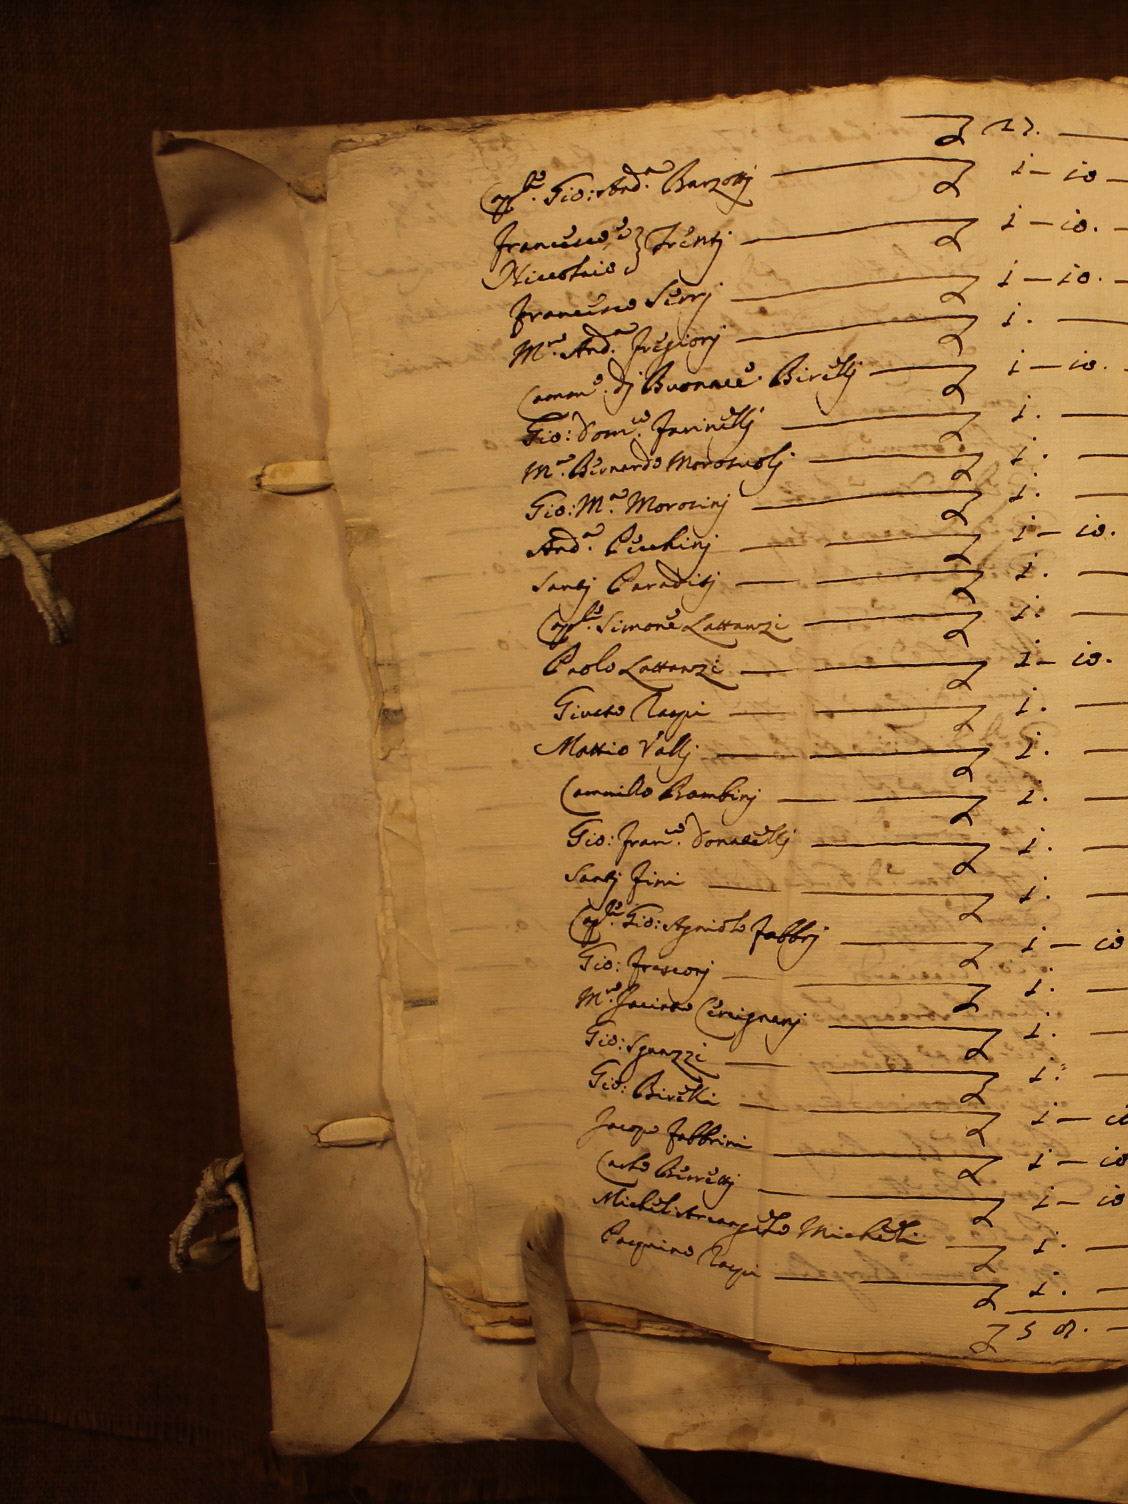 27.
Cap.º Gio: And.ª Barzottj 1 – 10
Francesco, e
Niccolaio } Trentj 1 – 10.
Francesco Serrj 1 – 10.
M.ro And.ª Fregionj 1.
Buonacc. Birettj 1 – 10.
Gio: Dom.co Farinellj 1.
M.ro Bernardo Morosuolj 1.
Gio: M.ª Morosinj 1.
And.ª Cecchinj 1 – 10.
Santj Paraditj 1.
Simone Lattanzi 1.
Paolo Lattanzi 1 – 10.
Raspi 1.
Mattio Vallj 1.
Cammillo Bambinj 1.
Gio: Fran.co Donatellj 1.
Santj Fini 1.
Gio: Agniolo Fabbrj 1 – 10
Gio: Frasconj 1.
M.ro Jacinto Cercignanj 1.
Gio: Sguazzi 1.
Gio: Biretti 1 – 10
Jacopo Fabbrini 1 – 10
Carlo Birrettj 1 – 10
Michelarcangelo Micheli 1.
Pasquino Raspi 1.
58.